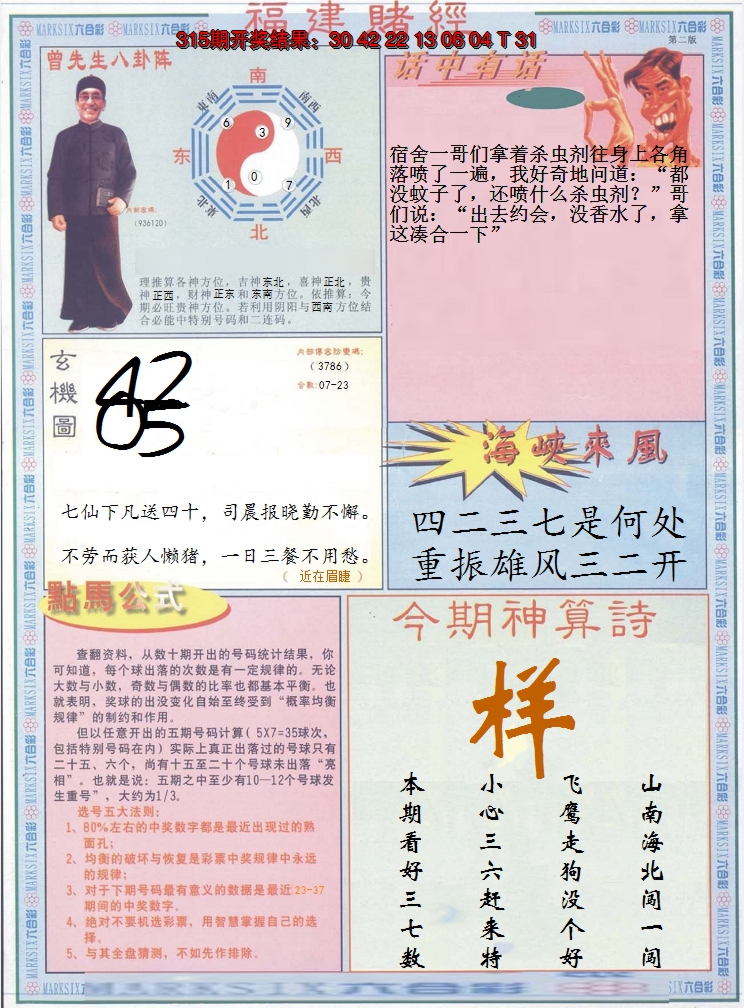 福建賭經
315期开奖结果：30 42 22 13 06 04 T 31
第二版
MARKSIX六合彩
曾先生八卦阵
南
東南
南西
东
西
東北
北西
北
6
3
9
1
0
7
内部密碼:
(936120)
理推算各神方位，吉神东北，喜神正北，贵
神正西，财神正东和东南方位。依推算：今
期必旺贵神方位。若利用阴阳与西南方位结
合必能中特别号码和二连码。
话中有话
宿舍一哥们拿着杀虫剂往身上各角
落喷了一遍，我好奇地问道：“都
没蚊子了，还喷什么杀虫剂？”哥
们说：“出去约会，没香水了，拿
这凑合一下”
玄機圖
42
05
(3786)
合数:07-23
七仙下凡送四十，司晨报晓勤不懈。
不劳而获人懒猪，一日三餐不用愁。
（ 近在眉睫 ）
海峽來風
四二三七是何处
重振雄风三二开
點馬公式
查翻资料，从数十期开出的号码统计结果，你
可知道，每个球出落的次数是有一定规律的。无论
大数与小数，奇数与偶数的比率也都基本平衡。也
就表明，奖球的出没变化自始至终受到“概率均衡
规律”的制约和作用。
但以任意开出的五期号码计算( 5X7=35球次，
包括特别号码在内) 实际上真正出落过的号球只有
二十五、六个，尚有十五至二十个号球未出落“亮
相”。也就是说：五期之中至少有10—12个号球发
生重号”，大约为1/3。
选号五大法则：
1、80%左右的中奖数字都是最近出现过的熟
面孔；
2、均衡的破坏与恢复是彩票中奖规律中永远
的规律；
3、对于下期号码最有意义的数据是最近23-37
期间的中奖数字。
4、绝对不要机选彩票，用智慧掌握自己的选
择。
5、与其全盘猜测，不如先作排除。
今期神算詩
样
山南海北闯一闯
飞鹰走狗没个好
小心三六赶来特
本期看好三七数